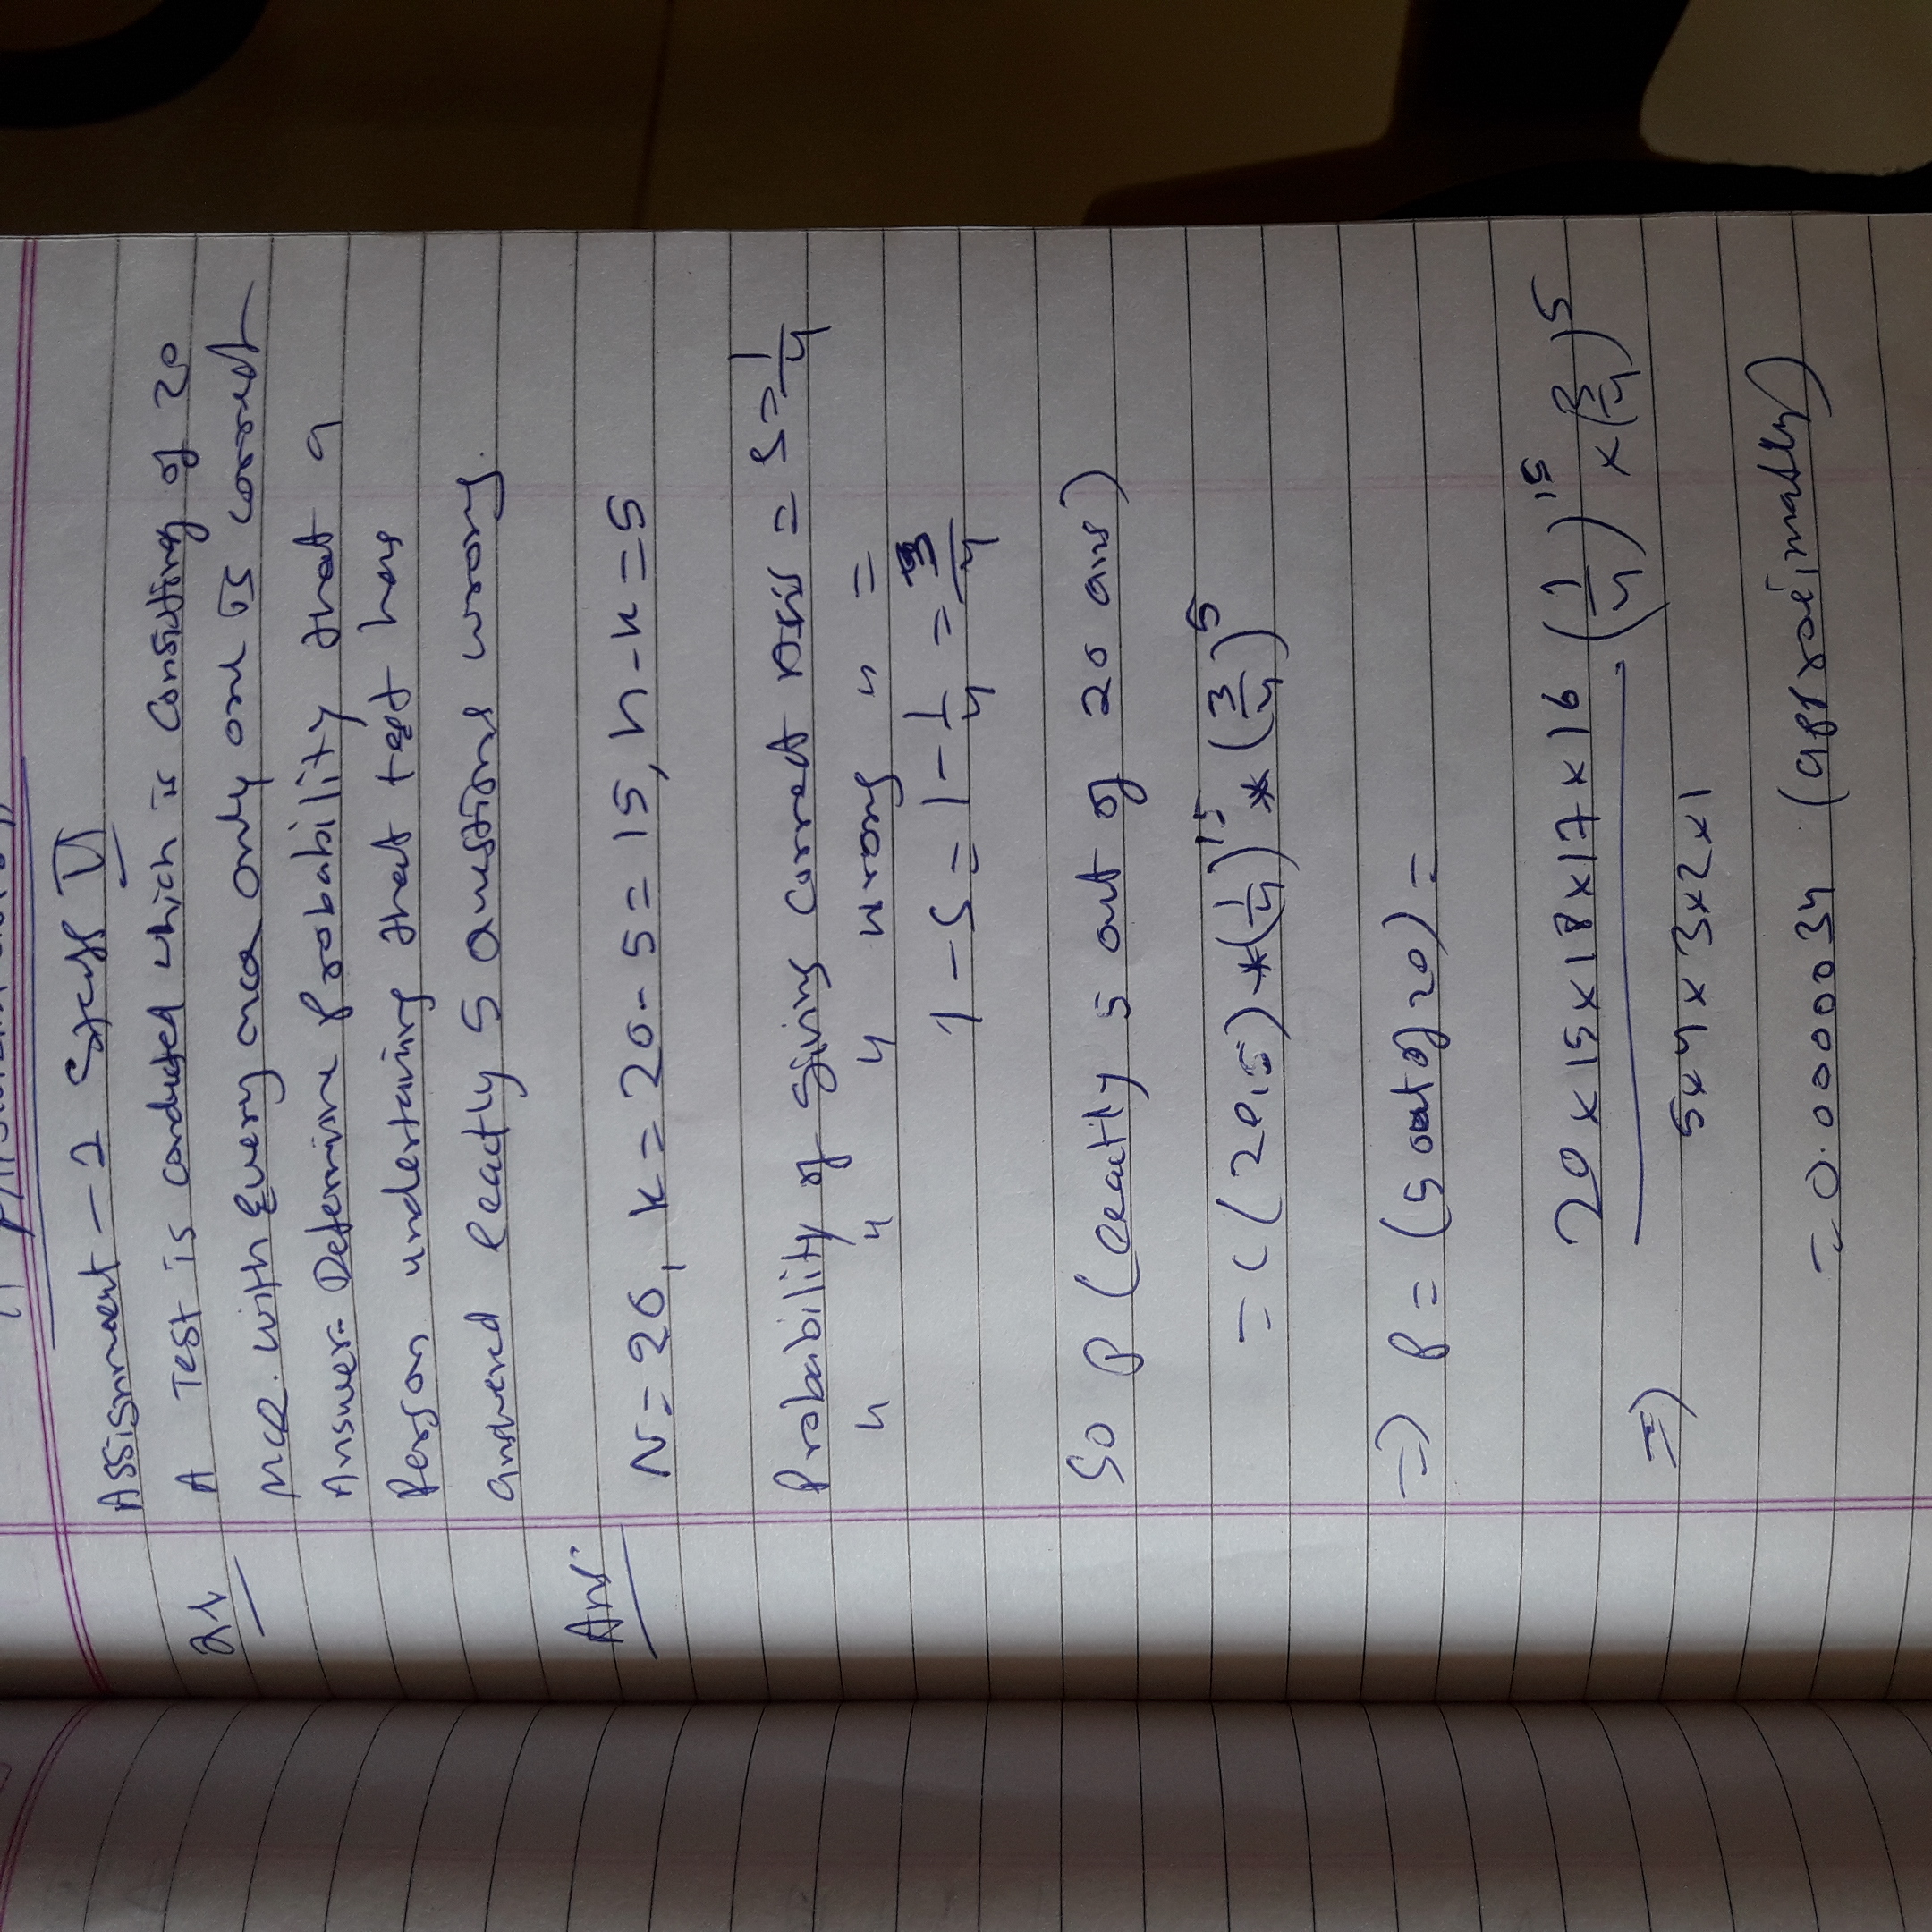 Assignment - 2 Stats II
Q1 A Test is conducted which is Consisting of 20
MCQ. with Every mcq only one is correct
Answer. Determine Probability that a
Person undertaking that test has
answered exactly 5 Questions wrong.
Ans:
N = 20, k = 20 - 5 = 15, n - k = 5
Probability of giving correct Ans = S = 1/4
" " " wrong " =
1 - S = 1 - 1/4 = 3/4
So P (exactly 5 out of 20 ans)
= C(20,5) * (1/4)^15 * (3/4)^5
=> P = (5 out of 20) =
=> 20 x 19 x 18 x 17 x 16 / 5 x 4 x 3 x 2 x 1 (1/4)^15 x (3/4)^5
= 0.0000034 (approximately)